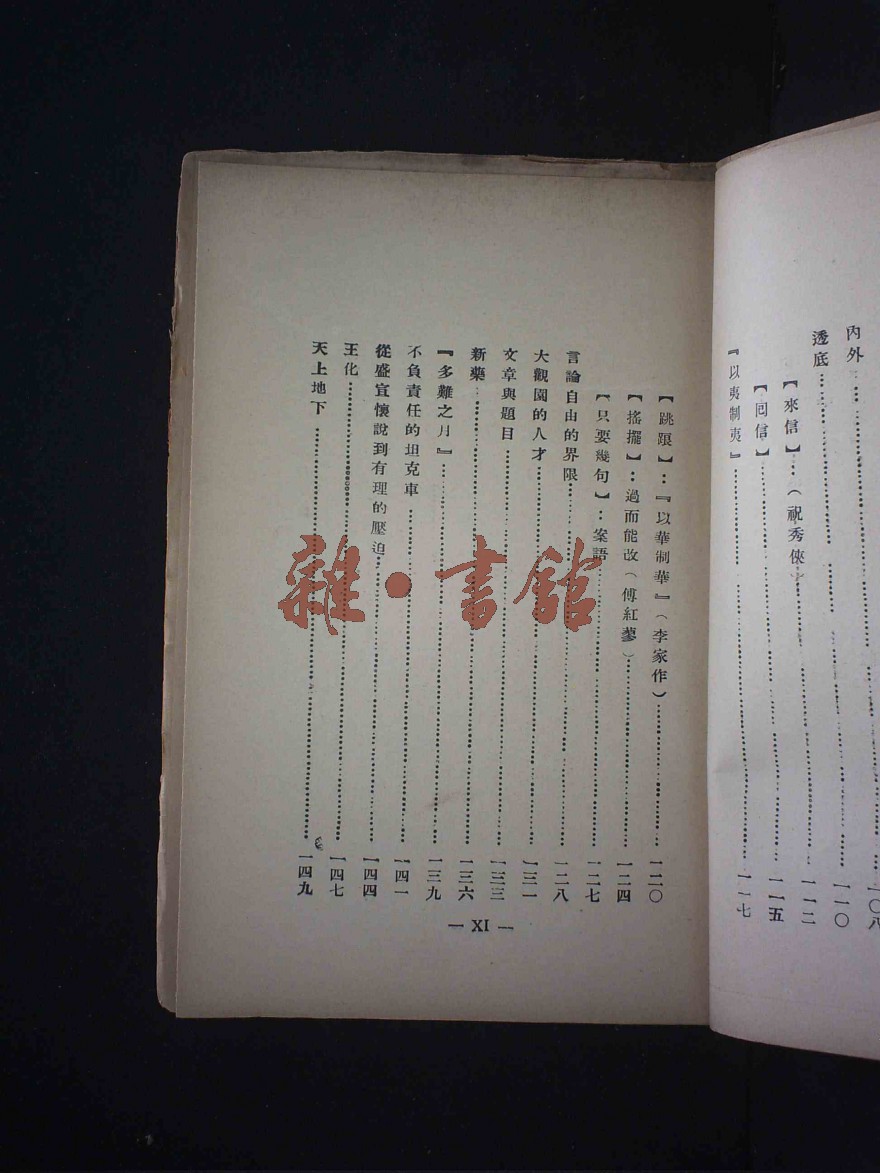 內外…一〇八
透底…一一〇
【來信】…（祝秀俠）…一一二
【回信】…一一五
『以夷制夷』…一一七
【跳踉】…『以華制華』（李家作）…一二〇
【搖擺】…過而能改（傅紅蓼）…一二四
【只要幾句】…案語…一二七
言論自由的界限…一二八
大觀園的人才…一三一
文章與題目…一三三
新藥…一三六
『多難之月』…一三九
不負責任的坦克車…一四一
從盛宣懷說到有理的壓迫…一四四
王化…一四七
天上地下…一四九
— XI —
雜·書館